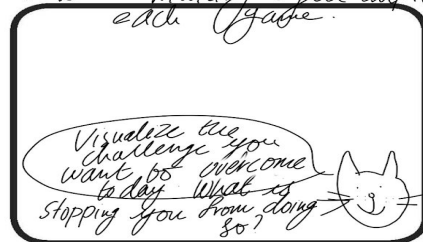 each game.
Visualize the
challenge you
want to overcome
today what is
stopping you from doing
so?